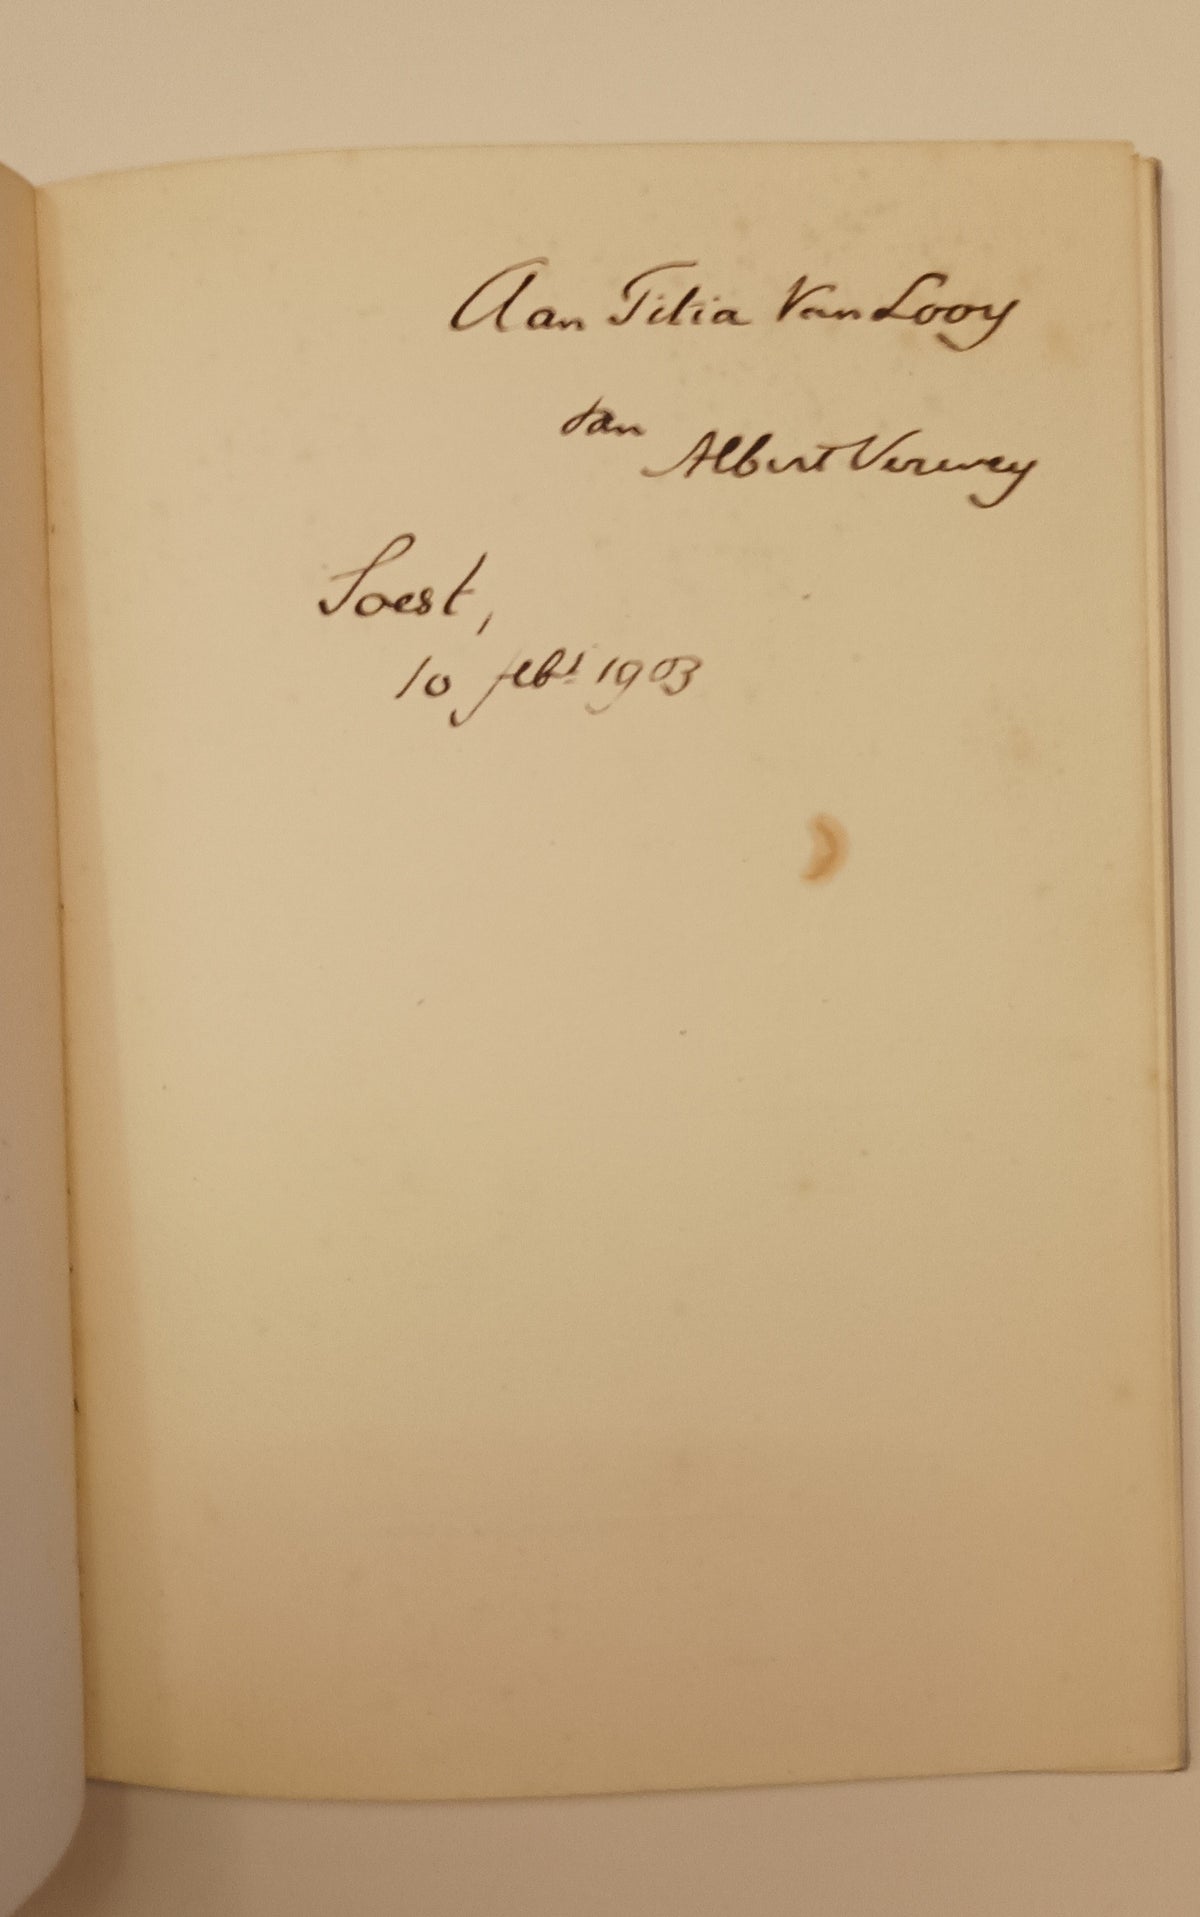 Aan Titia Van Looy
van
Albert Verwey
Soest,
10 febr 1903